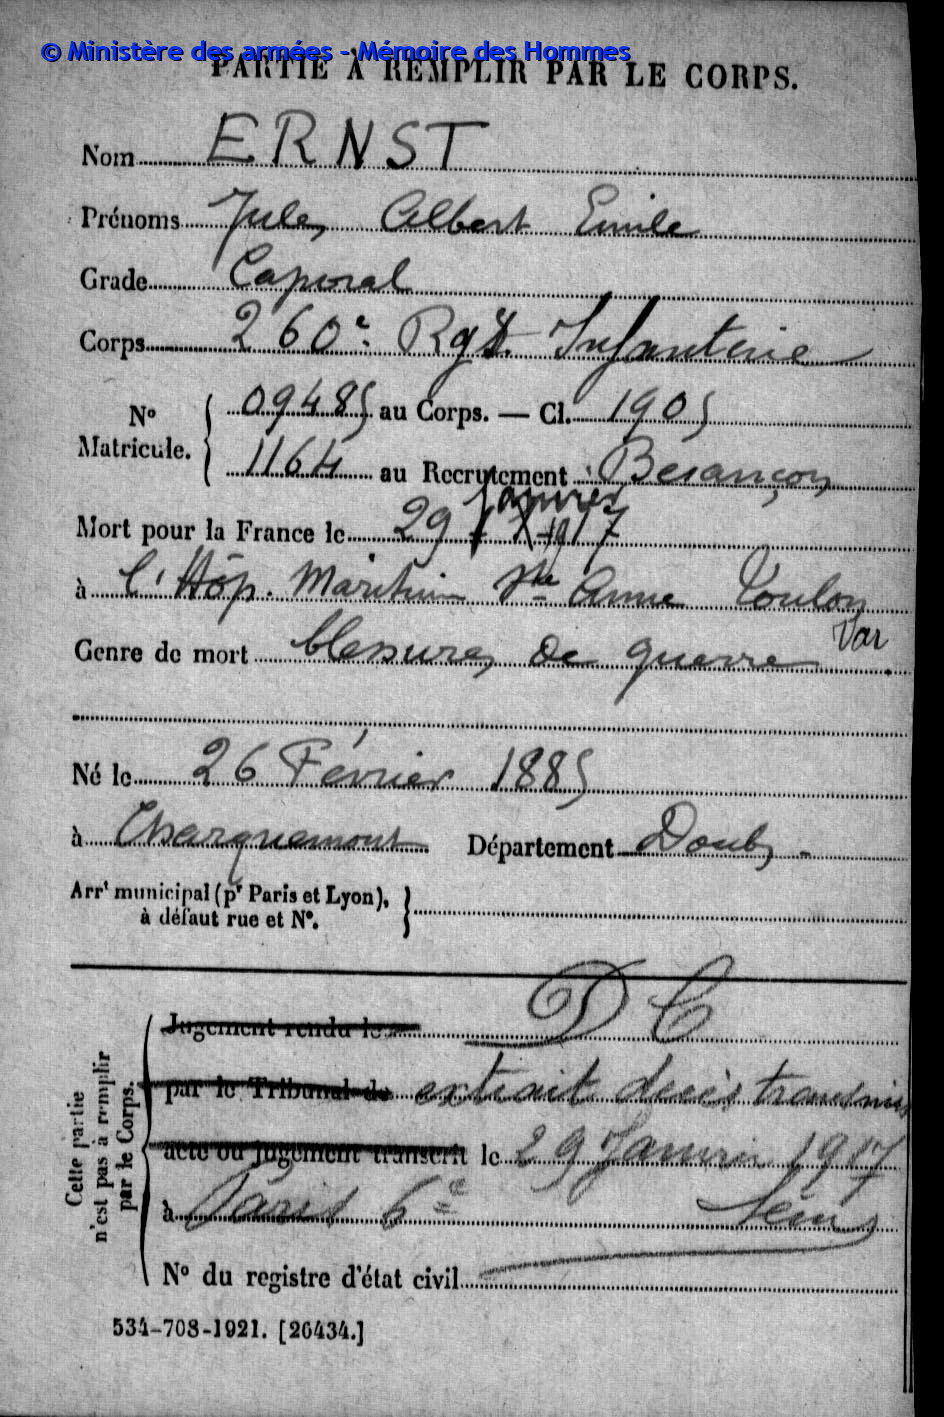 © Ministère des armées - Mémoire des Hommes
PARTIE À REMPLIR PAR LE CORPS.
Nom ERNST
Prénoms Jules Albert Emile
Grade Caporal
Corps 260e Rgt. Infanterie
N° Matricule. { 09485 au Corps. — Cl. 1905
1164 au Recrutement Besançon
Mort pour la France le 29 Janvier 1917
à l'Hôp. Maritime Ste Anne Toulon
Var
Genre de mort blessures de guerre
Né le 26 Février 1885
à Charquemont Département Doubs
Arrt municipal (pr Paris et Lyon), à défaut rue et N°. }
D C
Cette partie n'est pas à remplir par le Corps.
Jugement rendu le
par le Tribunal de extrait decès transmis
acte ou jugement transcrit le 29 Janvier 1917
à Paris 6e Seine
N° du registre d'état civil
534-708-1921. [26434.]